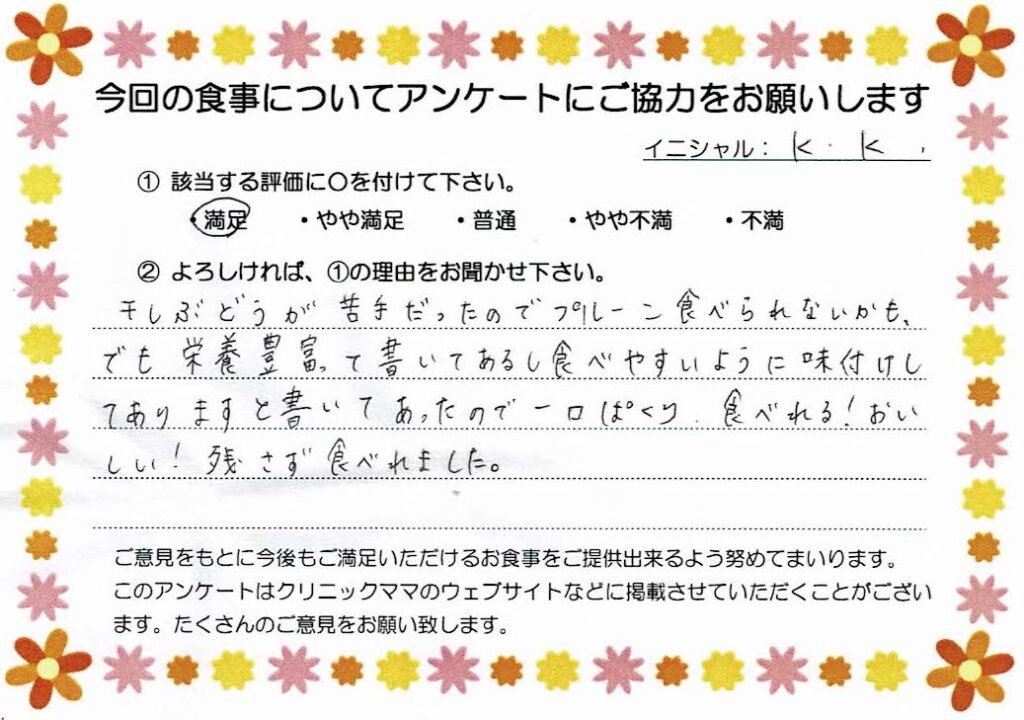 今回の食事についてアンケートにご協力をお願いします
イニシャル： K. K.
① 該当する評価に○を付けて下さい。
・満足 ・やや満足 ・普通 ・やや不満 ・不満
② よろしければ、①の理由をお聞かせ下さい。
干しぶどうが苦手だったのでプルーン食べられないかも、
でも栄養豊富って書いてあるし食べやすいように味付けし
てありますと書いてあったので一口ぱくり、食べれる！おい
しい！残さず食べれました。
ご意見をもとに今後もご満足いただけるお食事をご提供出来るよう努めてまいります。
このアンケートはクリニックママのウェブサイトなどに掲載させていただくことがござい
ます。たくさんのご意見をお願い致します。